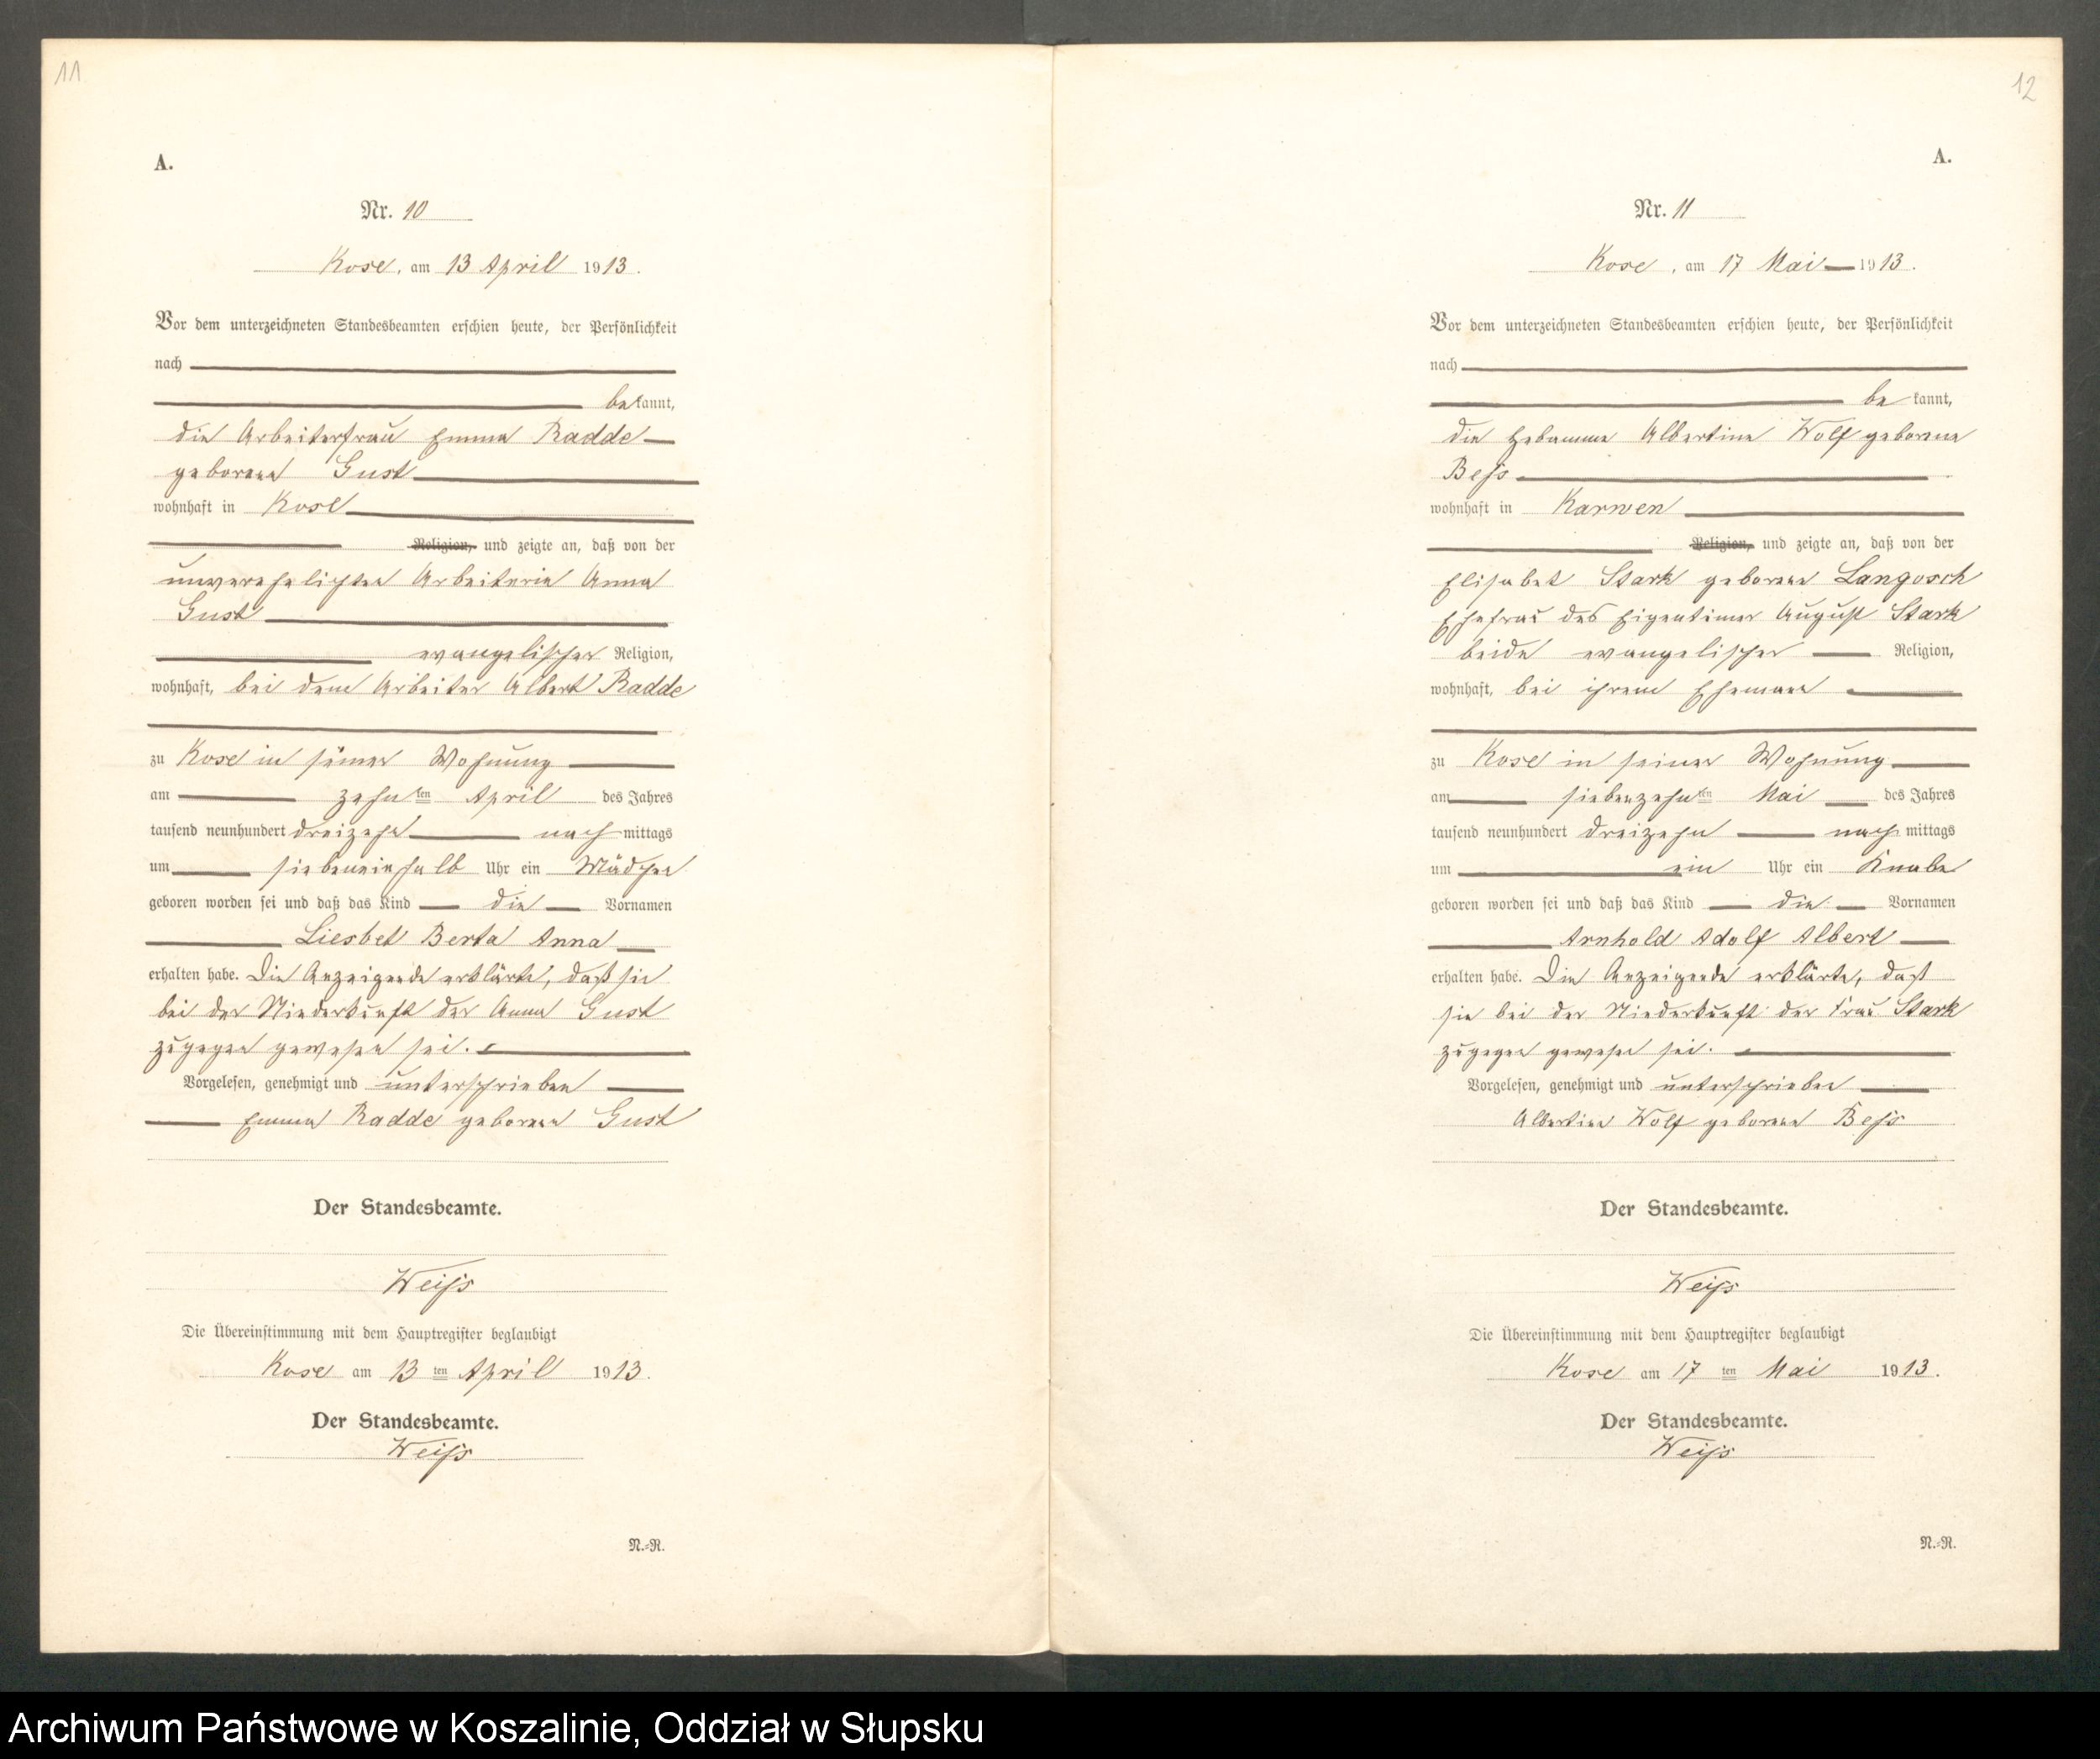 11
A.
Nr. 10
Kose, am 13 April 1913.
Vor dem unterzeichneten Standesbeamten erschien heute, der Persönlichkeit
nach
bekannt,
die Arbeiterfrau Emma Radde
geborene Gust
wohnhaft in Kose
Religion, und zeigte an, daß von der
unverehelichten Arbeiterin Anna
Gust
evangelischer Religion,
wohnhaft, bei dem Arbeiter Albert Radde
zu Kose in seiner Wohnung
am zehnten April des Jahres
tausend neunhundert dreizehn nachmittags
um siebeneinhalb Uhr ein Mädchen
geboren worden sei und daß das Kind die Vornamen
Liesbet Berta Anna
erhalten habe. Die Anzeigende erklärte, daß sie
bei der Niederkunft der Anna Gust
zugegen gewesen sei.
Vorgelesen, genehmigt und unterschrieben
Emma Radde geborene Gust
Der Standesbeamte.
Weiß
Die Übereinstimmung mit dem Hauptregister beglaubigt
Kose am 13 ten April 1913.
Der Standesbeamte.
Weiß
N.=R.
12
A.
Nr. 11
Kose, am 17 Mai 1913.
Vor dem unterzeichneten Standesbeamten erschien heute, der Persönlichkeit
nach
bekannt,
die Hebamme Albertine Wolf geborene
Beß
wohnhaft in Karwen
Religion, und zeigte an, daß von der
Elisabet Stark geborene Langosch
Ehefrau des Eigentimer August Stark
beide evangelischer Religion,
wohnhaft, bei ihrem Ehemann
zu Kose in seiner Wohnung
am siebenzehnten Mai des Jahres
tausend neunhundert dreizehn nachmittags
um ein Uhr ein Knabe
geboren worden sei und daß das Kind die Vornamen
Arnhold Adolf Albert
erhalten habe. Die Anzeigende erklärte, daß
sie bei der Niederkunft der Frau Stark
zugegen gewesen sei.
Vorgelesen, genehmigt und unterschrieben
Albertine Wolf geborene Beß
Der Standesbeamte.
Weiß
Die Übereinstimmung mit dem Hauptregister beglaubigt
Kose am 17 ten Mai 1913.
Der Standesbeamte.
Weiß
N.=R.
Archiwum Państwowe w Koszalinie, Oddział w Słupsku